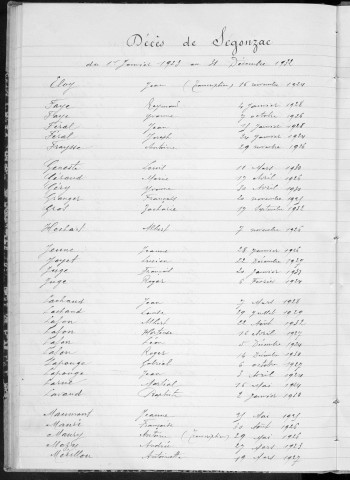 Décès de Segonzac
du 1er Janvier 1923 au 31 Décembre 1932
Eloy Jean 16 novembre 1924
Faye Raymond 4 Janvier 1926
Faye Yvonne 7 octobre 1926
Féral Jean Janvier 1928
Féral Joseph 20 Janvier 1924
Fraysse Antoine 29 novembre 1926
Geneste Louis 10 Mars 1930
Géraud Marie 17 Avril 1926
Géry Yvonne 30 Avril 1930
Granger François 20 novembre 1925
Gros Zacharie 17 Septembre 1932
Hochart Albert 7 novembre 1926
Jeanne Jeanne 28 Janvier 1926
Joyet Lucien 22 Décembre 1927
Juge François 20 Janvier 1923
Juge Roger 6 Février 1924
Lachaud Jean 7 Mars 1928
Lachaud 29 Juillet 1929
Lafon Albert 22 Août 1932
Lafon 15 Avril 1927
Lafon Léon 5 Décembre 1924
Lafon Roger 14 Décembre 1930
Laronge Gabriel 6 octobre 1927
Laronge Jean 2 Avril 1924
Larue Martial 16 Mai 1924
Lavaud 2 Janvier 1932
Maumont Jeanne 25 Mai 1925
Françoise 10 Août 1926
Maury Antoine 29 Mai 1926
Mazet Andrée 27 Mars 1923
Mérillou Antoinette 19 Mars 1927